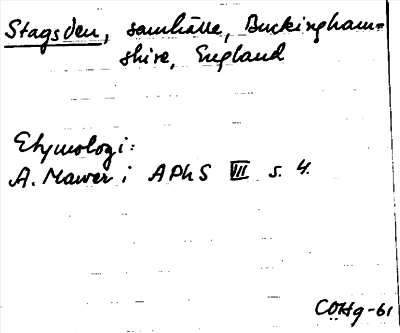 Stagsden, samhälle, Buckingham=
shire, England
Etymologi:
A. Mawer i APhS III s. 4.
COHg-61